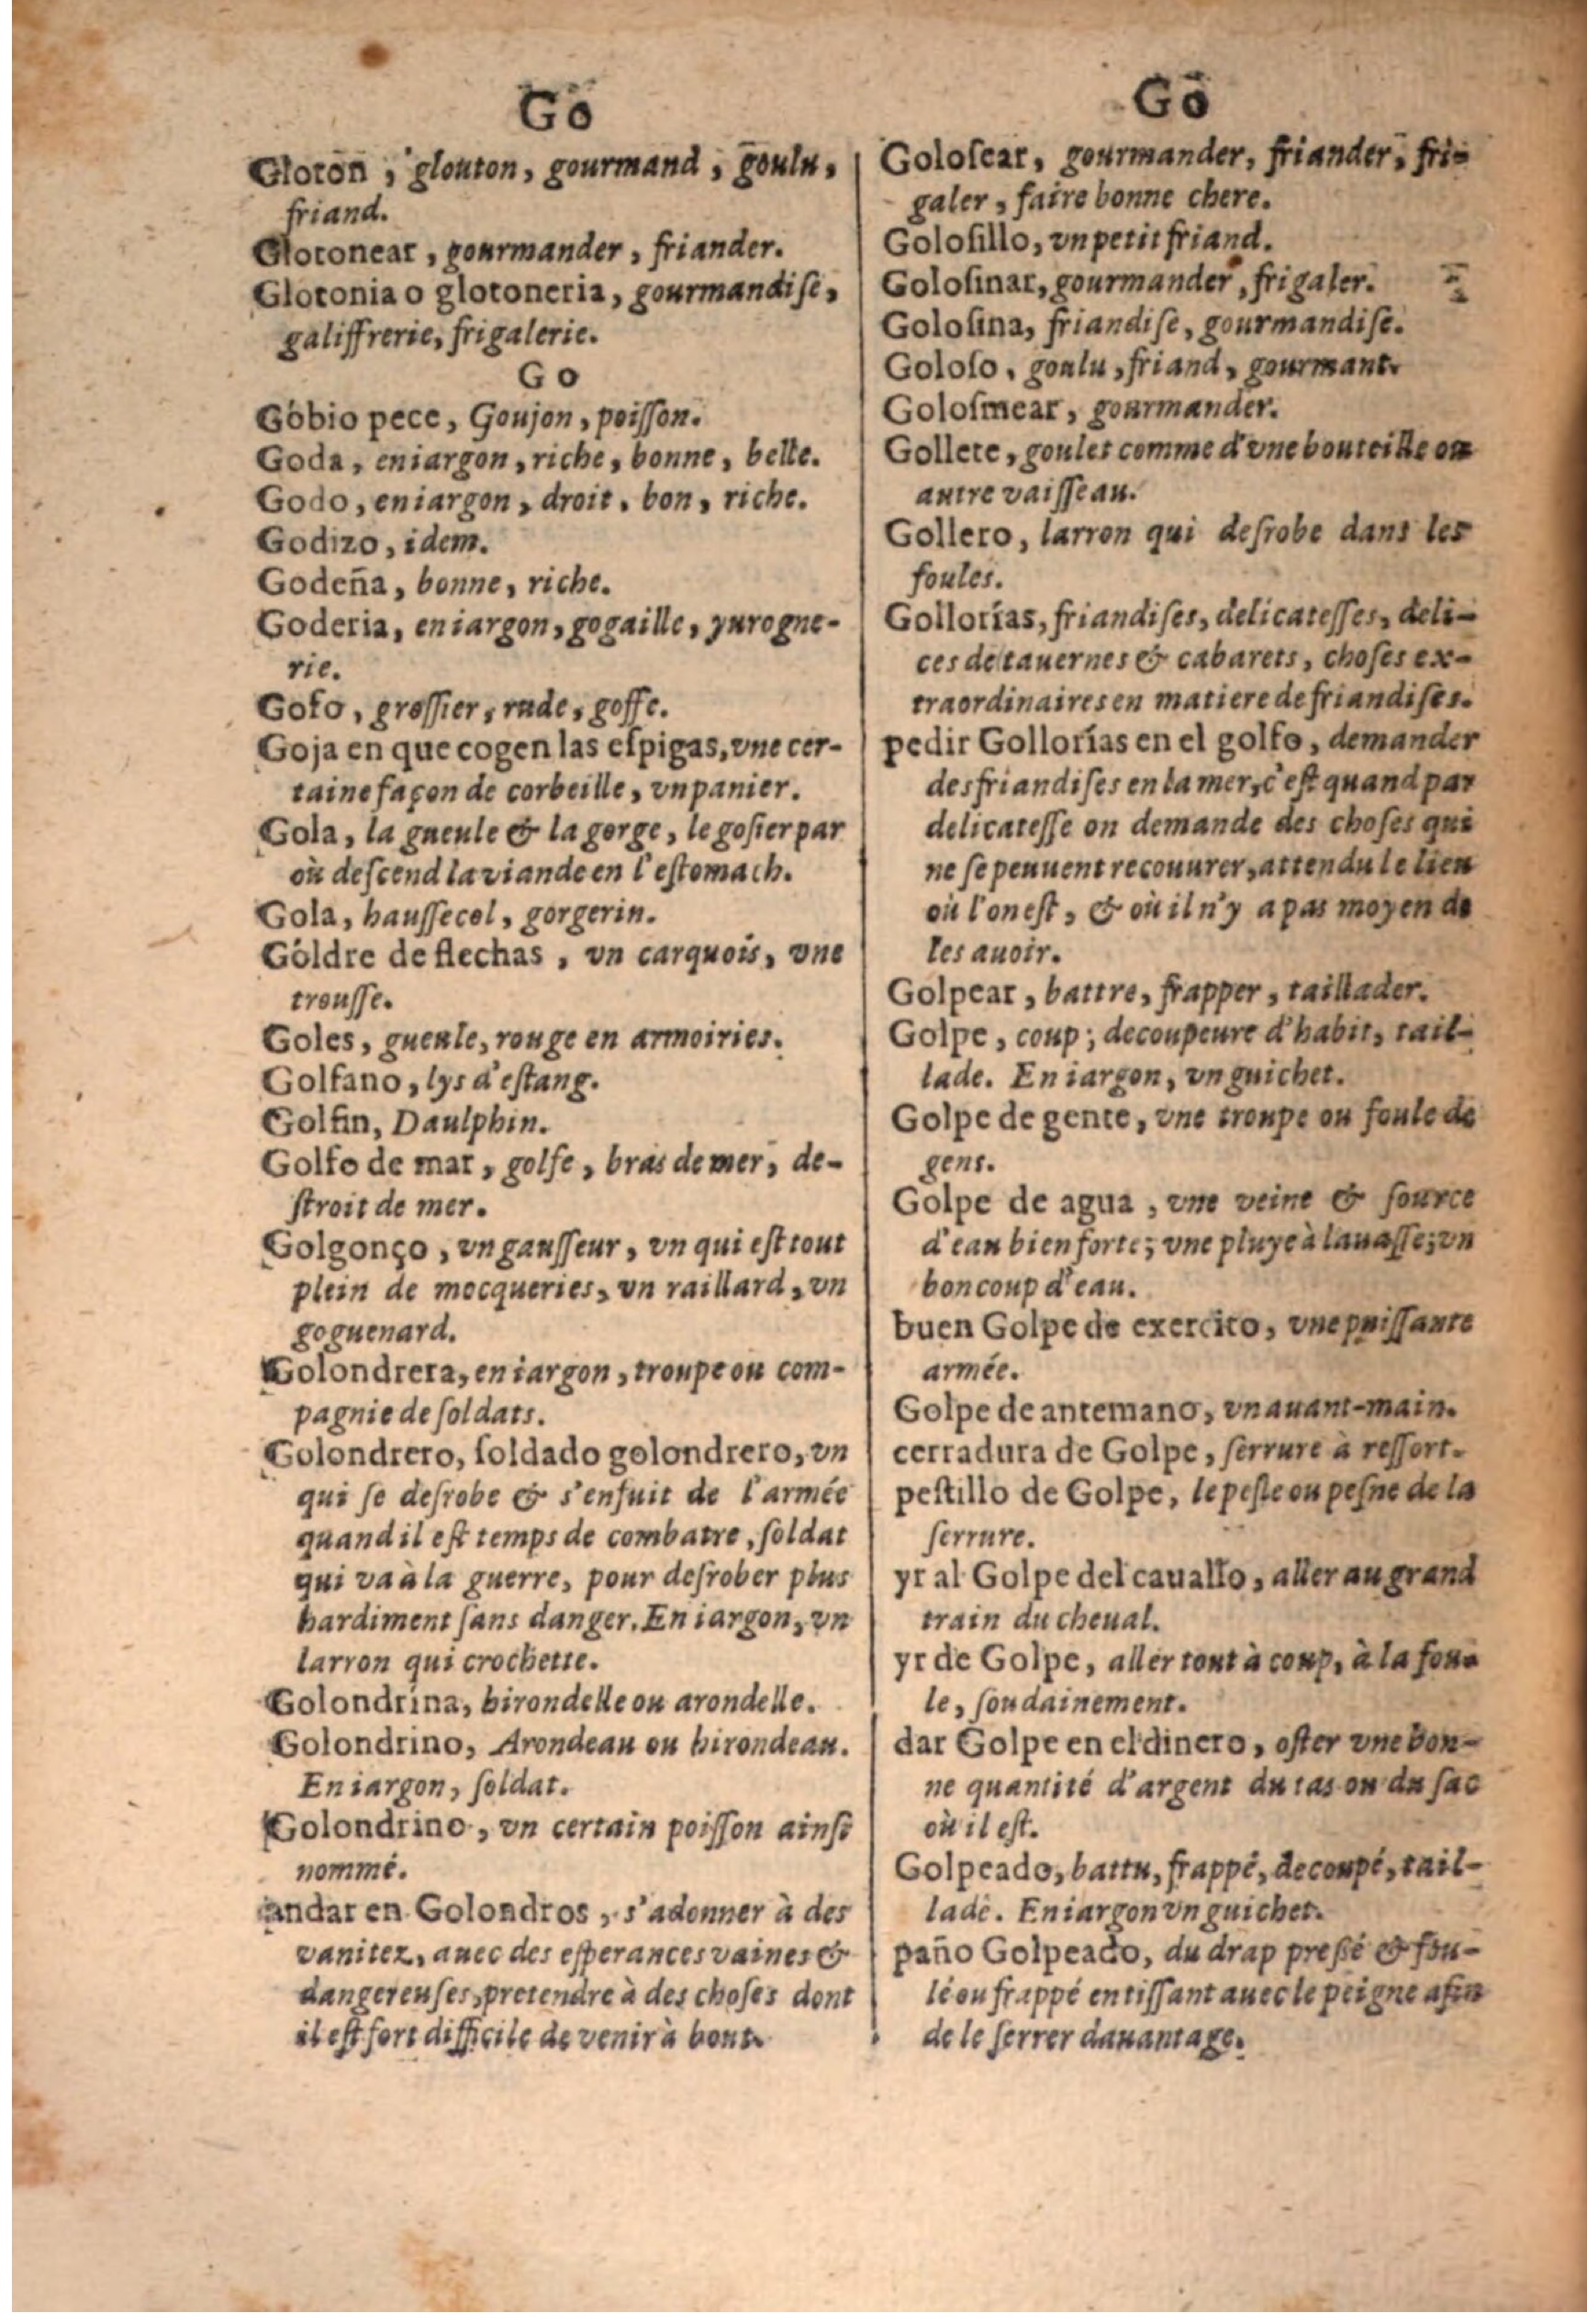 Go
Glotón, glouton, gourmand, goulu,
friand.
Glotonear, gourmander, friander.
Glotonia o glotoneria, gourmandiſe,
galiffrerie, frigalerie.
Go
Góbio pece, Goujon, poiſſon.
Goda, en iargon, riche, bonne, belle.
Godo, en iargon, droit, bon, riche.
Godizo, idem.
Godeña, bonne, riche.
Goderia, en iargon, gogaille, yurogne-
rie.
Gofo, groſſier, rude, goffe.
Goja en que cogen las eſpigas, vne cer-
taine façon de corbeille, vn panier.
Gola, la gueule & la gorge, le goſier par
où deſcend la viande en l'eſtomach.
Gola, hauſſecol, gorgerin.
Góldre de flechas, vn carquois, vne
trouſſe.
Goles, gueule, rouge en armoiries.
Golfano, lys d'eſtang.
Golfin, Daulphin.
Golfo de mar, golfe, bras de mer, de-
ſtroit de mer.
Golgonço, vn gauſſeur, vn qui eſt tout
plein de mocqueries, vn raillard, vn
goguenard.
Golondrera, en iargon, troupe ou com-
pagnie de ſoldats.
Golondrero, ſoldado golondrero, vn
qui ſe deſrobe & s'enſuit de l'armée
quand il eſt temps de combatre, ſoldat
qui va à la guerre, pour deſrober plus
hardiment ſans danger. En iargon, vn
larron qui crochette.
Golondrína, hirondelle ou arondelle.
Golondrino, Arondeau ou hirondeau.
En iargon, ſoldat.
Golondrino, vn certain poiſſon ainſi
nommé.
andar en Golondros, s'adonner à des
vanitez, auec des eſperances vaines &
dangereuſes, pretendre à des choſes dont
il eſt fort difficile de venir à bout.
Go
Goloſear, gourmander, friander, fri-
galer, faire bonne chere.
Goloſillo, vn petit friand.
Goloſinar, gourmander, frigaler.
Goloſina, friandiſe, gourmandiſe.
Goloſo, goulu, friand, gourmant.
Goloſmear, gourmander.
Gollete, goulet comme d'vne bouteille ou
autre vaiſſeau.
Gollero, larron qui deſrobe dans les
foules.
Gollorías, friandiſes, delicateſſes, deli-
ces de tauernes & cabarets, choſes ex-
traordinaires en matiere de friandiſes.
pedir Gollorías en el golfo, demander
des friandiſes en la mer, c'eſt quand par
delicateſſe on demande des choſes qui
ne ſe peuuent recouurer, attendu le lieu
où l'on eſt, & où il n'y a pas moyen de
les auoir.
Golpear, battre, frapper, taillader.
Golpe, coup; decoupeure d'habit, tail-
lade. En iargon, vn guichet.
Golpe de gente, vne troupe ou foule de
gens.
Golpe de agua, vne veine & ſource
d'eau bien forte; vne pluye à lauaſſe; vn
bon coup d'eau.
buen Golpe de exercito, vne puiſſante
armée.
Golpe de antemano, vn auant-main.
cerradura de Golpe, ſerrure à reſſort.
peſtillo de Golpe, le peſle ou peſne de la
ſerrure.
yr al Golpe del cauallo, aller au grand
train du cheual.
yr de Golpe, aller tout à coup, à la fou-
le, ſoudainement.
dar Golpe en el dinero, oſter vne bon-
ne quantité d'argent du tas ou du ſac
où il eſt.
Golpeado, battu, frappé, decoupé, tail-
ladé. En iargon vn guichet.
paño Golpeado, du drap preſſé & fou-
lé ou frappé en tiſſant auec le peigne afin
de le ſerrer dauantage.